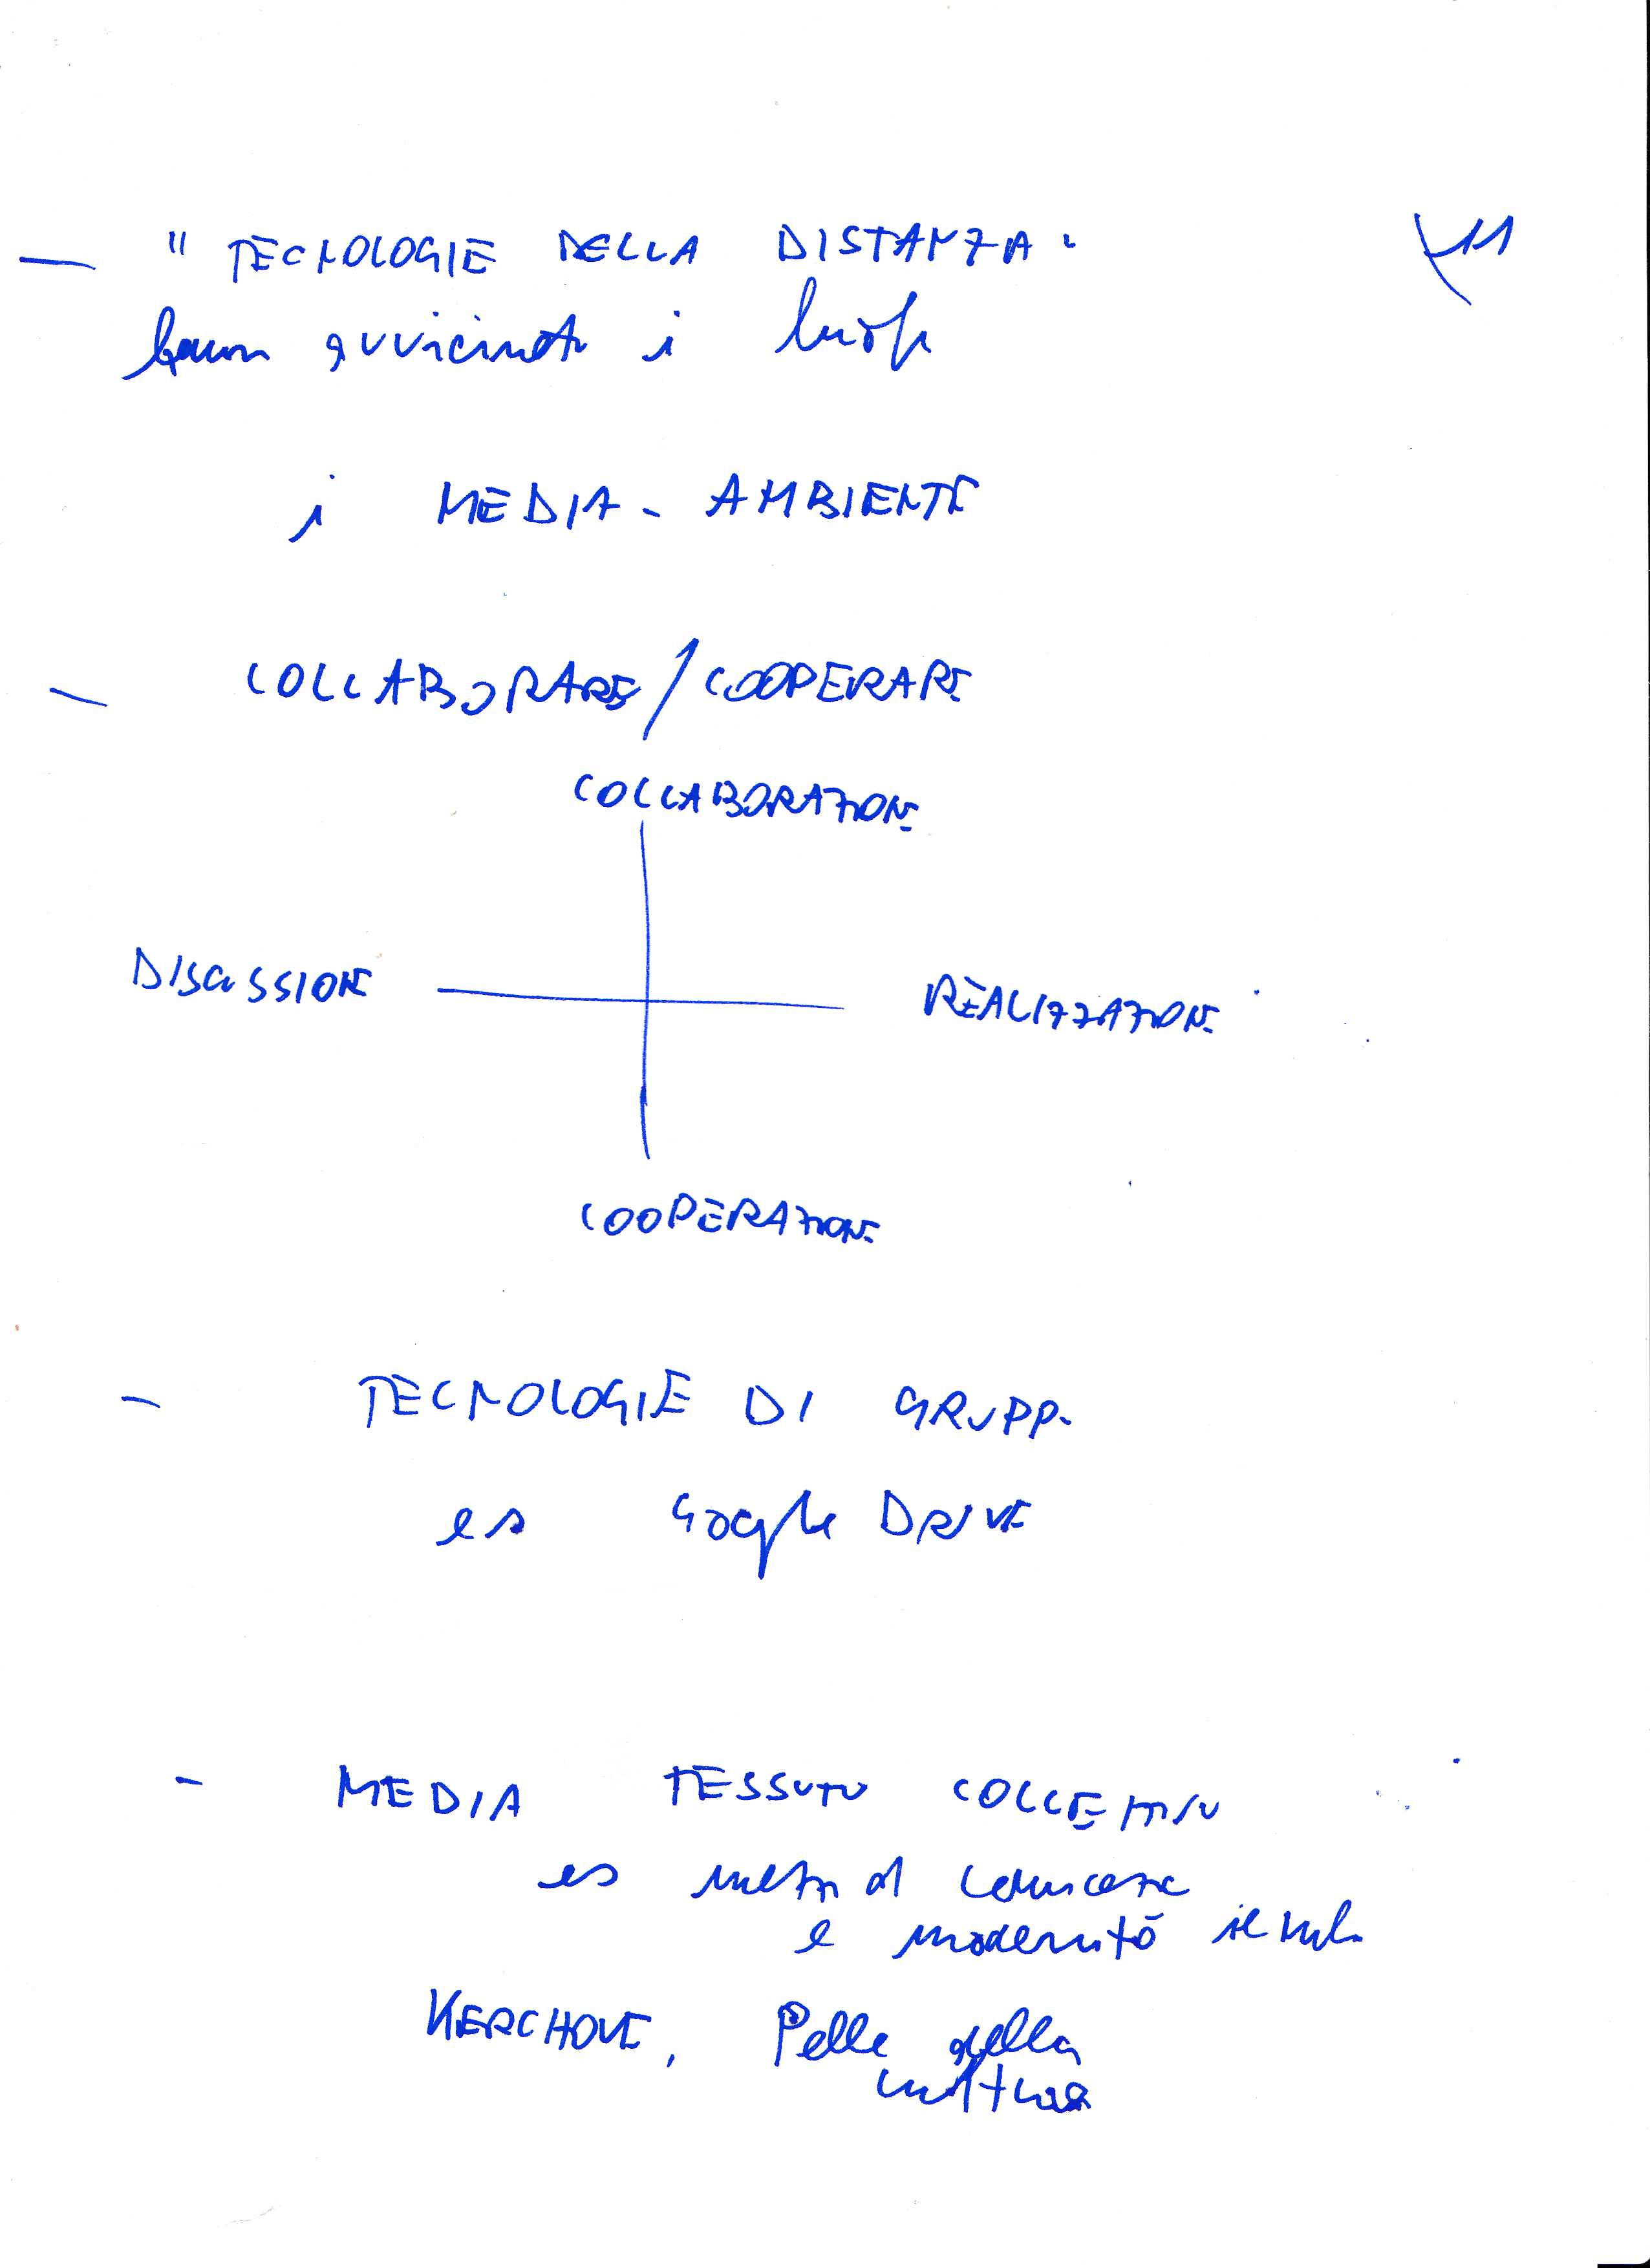 — "TECNOLOGIE DELLA DISTANZA" 11
hanno avvicinato i luoghi
i MEDIA - AMBIENTE
— COLLABORARE / COOPERARE
COLLABORAZIONE
DISCUSSIONE REALIZZAZIONE
COOPERAZIONE
- TECNOLOGIE DI GRUPPO
es Google DRIVE
- MEDIA TESSUTO COLLETTIVO
es
e modernità
KERCHOVE, Pelle della
cultura